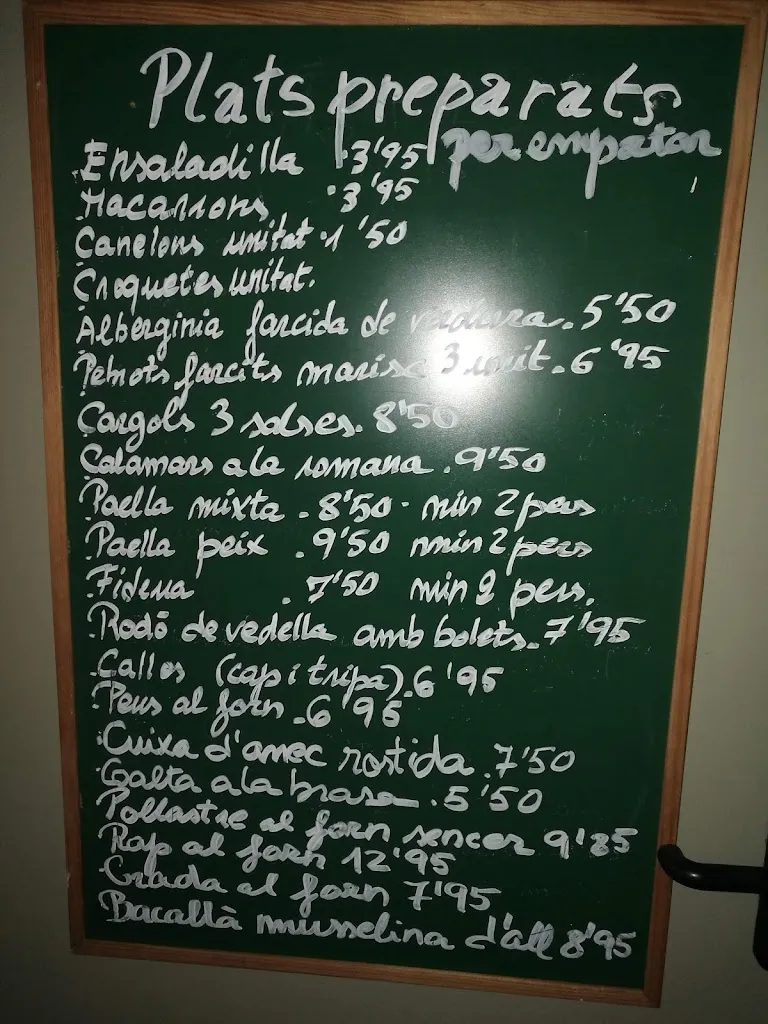 Plats preparats
per empatar
Ensaladilla 3'95
Macarrons 3'95
Canelons unitat 1'50
Croquetes unitat.
Alberginia farcida de verdura. 5'50
farcits marisc 3 unit. 6'95
Cargols 3 salses. 8'50
Calamars a la romana. 9'50
Paella mixta. 8'50. min 2 pers
Paella peix. 9'50 min 2 pers
Fideua. 7'50 min 2 pers.
Rodó de vedella amb bolets. 7'95
Callos (cap i tripa). 6'95
Peus al forn. 6'95
Cuixa d'anec rostida. 7'50
Galta a la brasa. 5'50
Pollastre al forn sencer 9'85
Rap al forn 12'95
al forn 7'95
Bacallà musselina d'all 8'95